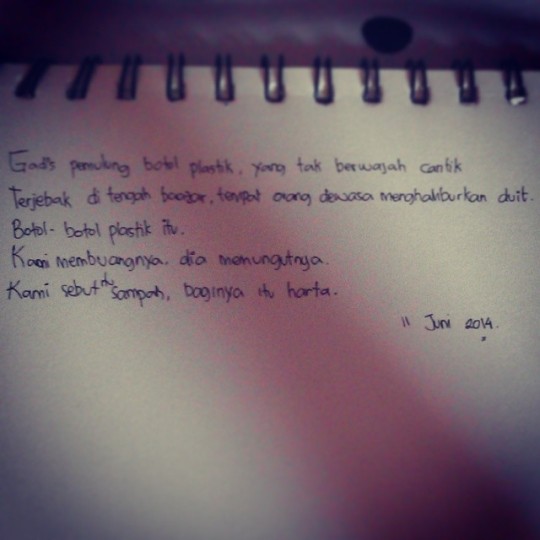 Gadis pemulung botol plastik, yang tak berwajah cantik
Terjebak di tengah bazar, tempat orang dewasa menghamburkan duit.
Botol-botol plastik itu.
Kami membuangnya. dia memungutnya.
Kami sebut itu sampah, baginya itu harta.
11 Juni 2014.